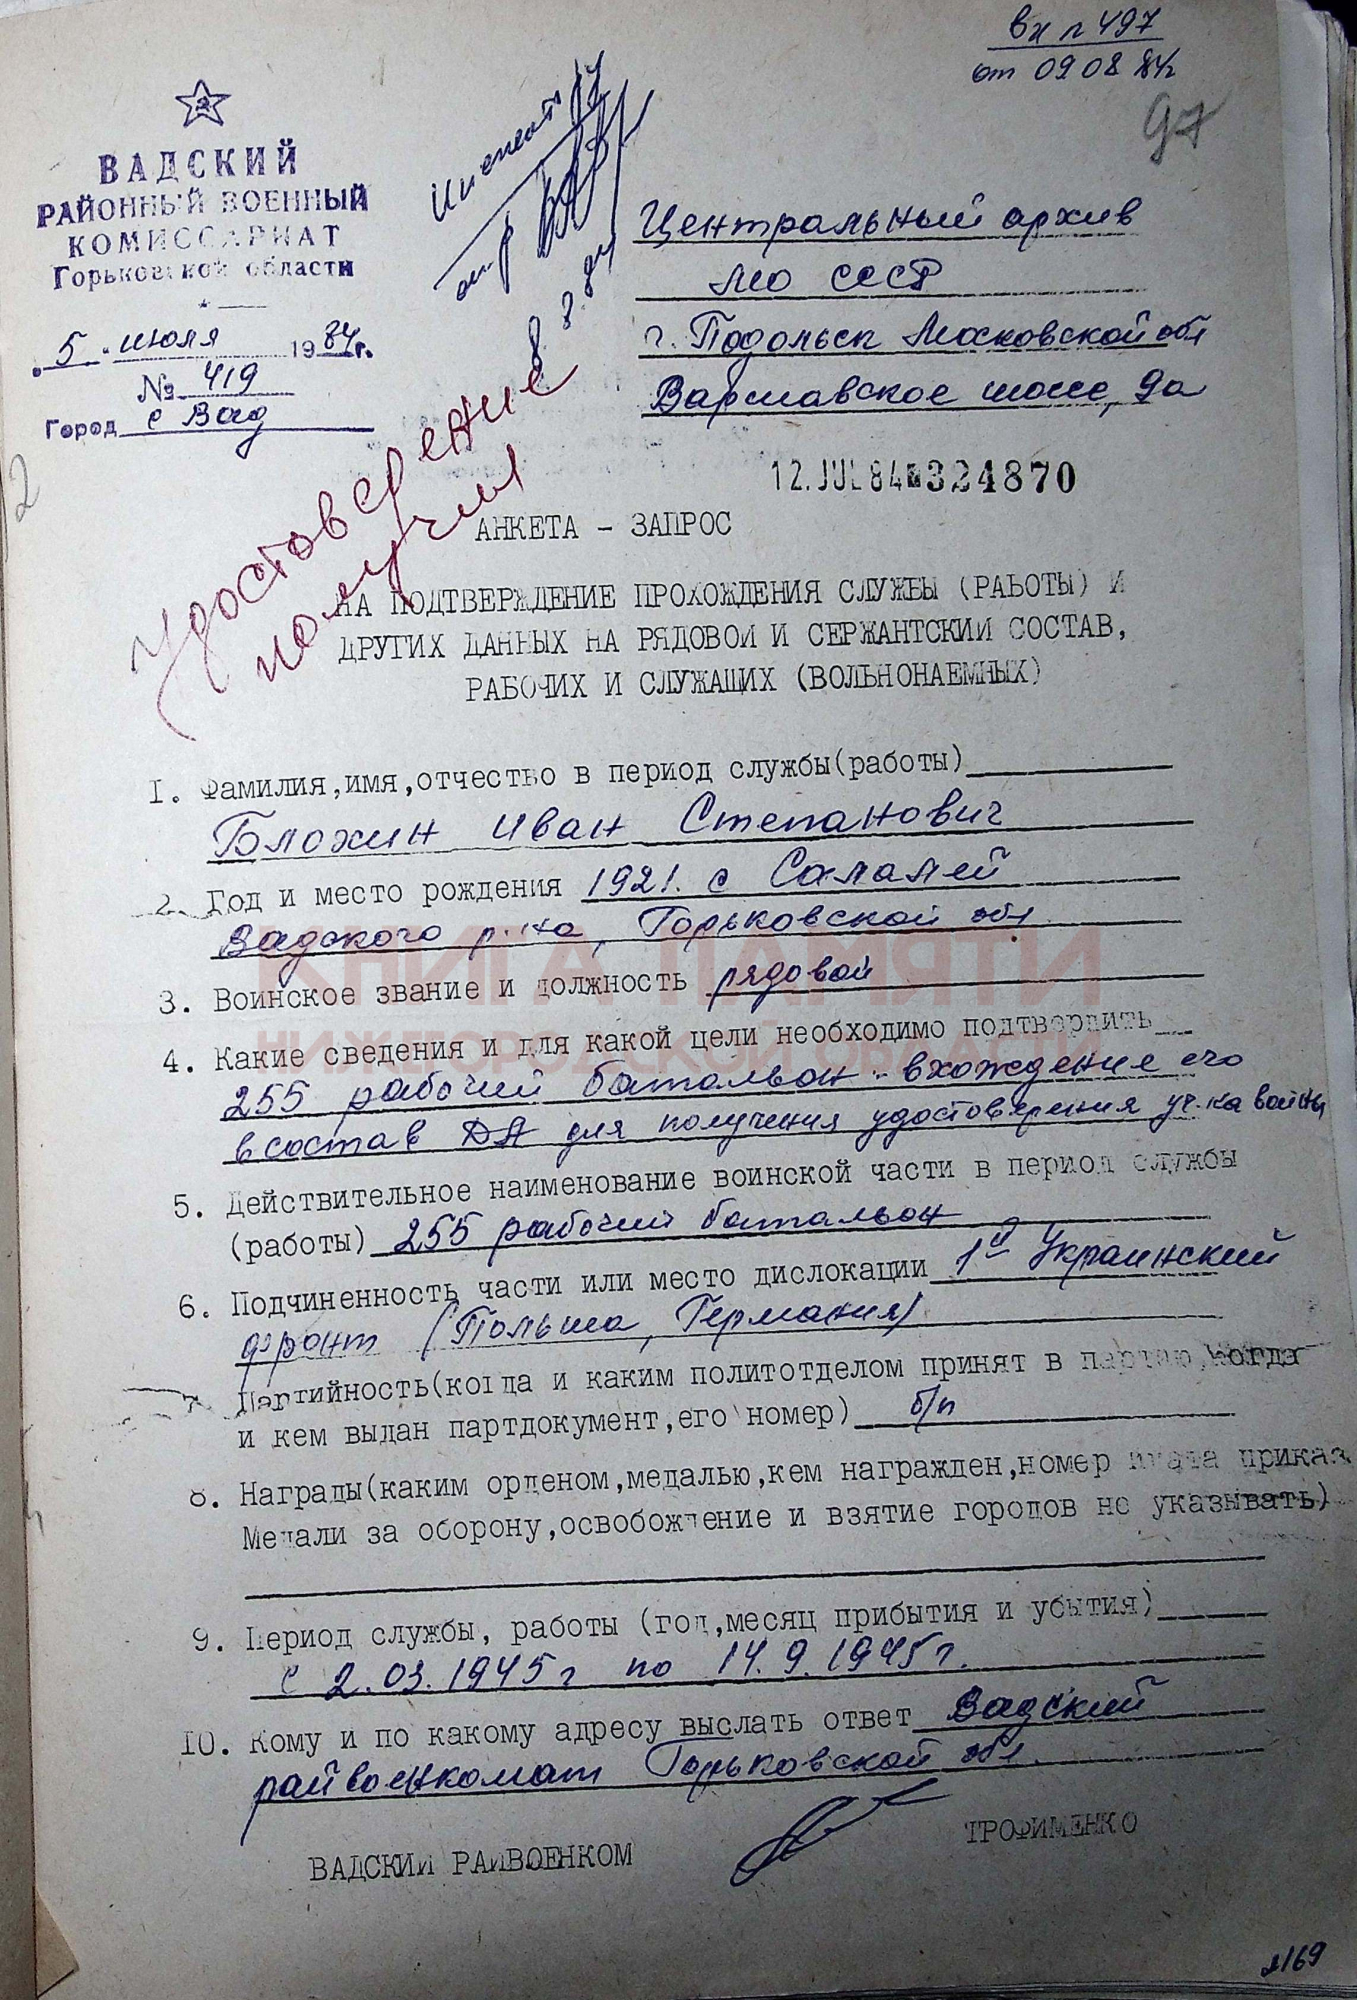 вх № 497
от 09 08 84г
97
ВАДСКИЙ
РАЙОННЫЙ ВОЕННЫЙ
КОМИССАРИАТ
Горьковской области
5 июля 1984г.
№ 419
Город с Вад
Центральный архив
МО СССР
г. Подольск Московской обл
Варшавское шоссе, 9а
12. JUL 84 324870
Удостоверение
получил
АНКЕТА - ЗАПРОС
НА ПОДТВЕРЖДЕНИЕ ПРОХОЖДЕНИЯ СЛУЖБЫ (РАБОТЫ) И
ДРУГИХ ДАННЫХ НА РЯДОВОЙ И СЕРЖАНТСКИЙ СОСТАВ,
РАБОЧИХ И СЛУЖАЩИХ (ВОЛЬНОНАЕМНЫХ)
1. Фамилия,имя,отчество в период службы(работы)
Блохин Иван Степанович
2. Год и место рождения 1921. с Салалей
Вадского р-на, Горьковской обл
КНИГА ПАМЯТИ
3. Воинское звание и должность рядовой
НИЖЕГОРОДСКОЙ ОБЛАСТИ
4. Какие сведения и для какой цели необходимо подтвердить
255 рабочий батальон - вхождение его
в состав ДА для получения удостоверения уч-ка войны
5. Действительное наименование воинской части в период службы
(работы) 255 рабочий батальон
6. Подчиненность части или место дислокации 1й Украинский
фронт (Польша, Германия)
7. Партийность(когда и каким политотделом принят в партию,когда
и кем выдан партдокумент,его номер) б/п
8. Награды(каким орденом,медалью,кем награжден,номер и дата приказ
Медали за оборону,освобождение и взятие городов не указывать)
9. Период службы, работы (год,месяц прибытия и убытия)
с 2.03.1945г по 14.9.1945г.
10. Кому и по какому адресу выслать ответ Вадский
райвоенкомат Горьковской обл.
ВАДСКИЙ РАЙВОЕНКОМ ТРОФИМЕНКО
2169